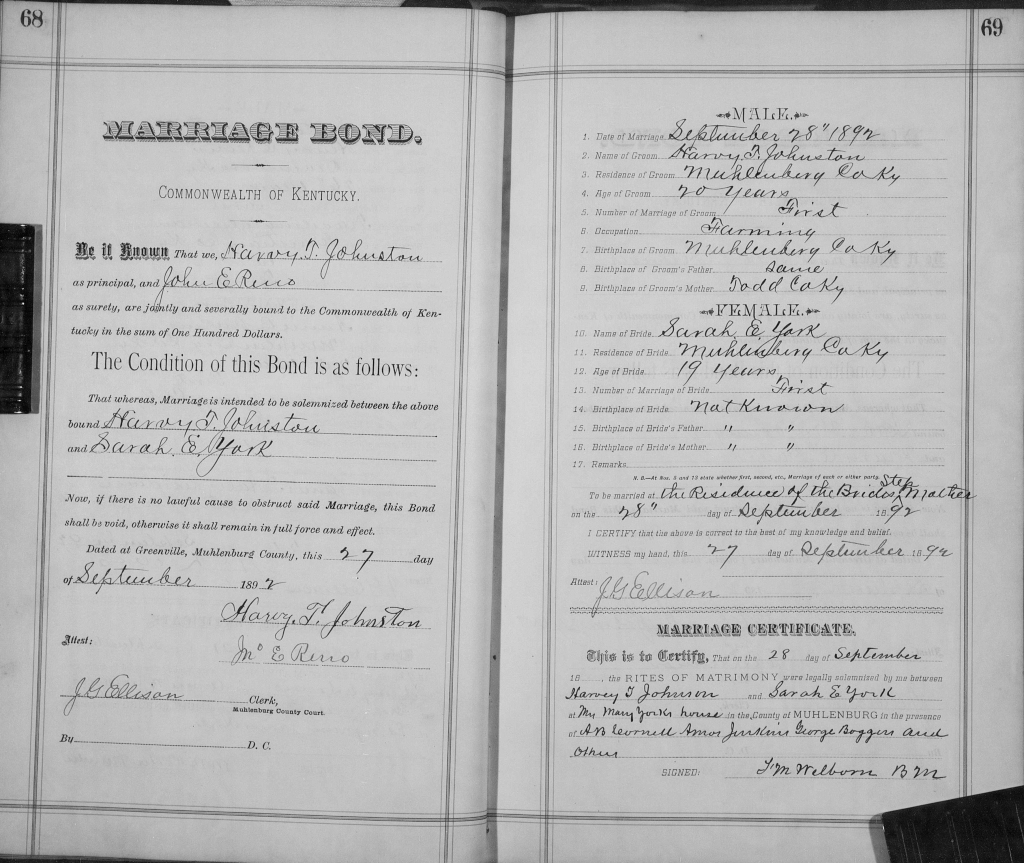 68
MARRIAGE BOND.
COMMONWEALTH OF KENTUCKY.
Be it Known That we, Harvy T. Johnston
as principal, and John E Reno
as surety, are jointly and severally bound to the Commonwealth of Ken-
tucky in the sum of One Hundred Dollars.
The Condition of this Bond is as follows:
That whereas, Marriage is intended to be solemnized between the above
bound Harvy T. Johnston
and Sarah E. York
Now, if there is no lawful cause to obstruct said Marriage, this Bond
shall be void, otherwise it shall remain in full force and effect.
Dated at Greenville, Muhlenburg County, this 27 day
of September 1892
Harvy. T. Johnston
Attest:
Jno E Reno
J G Ellison Clerk,
Muhlenburg County Court.
By D. C.
69
MALE.
1. Date of Marriage September 28" 1892
2. Name of Groom Harvy T. Johnston
3. Residence of Groom Muhlenberg Co Ky
4. Age of Groom 20 Years
5. Number of Marriage of Groom First
6. Occupation Farming
7. Birthplace of Groom Muhlenberg Co Ky
8. Birthplace of Groom's Father same
9. Birthplace of Groom's Mother Todd Co Ky
FEMALE.
10. Name of Bride Sarah E York
11. Residence of Bride Muhlenberg Co Ky
12. Age of Bride 19 Years
13. Number of Marriage of Bride First
14. Birthplace of Bride Not Known
15. Birthplace of Bride's Father " "
16. Birthplace of Bride's Mother " "
17. Remarks
N. B.—At Nos. 5 and 13 state whether first, second, etc., Marriage of each or either party.
To be married at the Residence of the Brides Step Mother
on the 28" day of September 1892
I CERTIFY that the above is correct to the best of my knowledge and belief.
WITNESS my hand, this 27 day of September 1892
Attest: J G Ellison
MARRIAGE CERTIFICATE.
This is to Certify, That on the 28 day of September
18 , the RITES OF MATRIMONY were legally solemnized by me between
Harvey T Johnson and Sarah E York
at Mrs Mary Yorks house in the County of MUHLENBURG in the presence
of A B Cornell Amos Jenkins George Boggess and
Others
SIGNED: Welborn B M